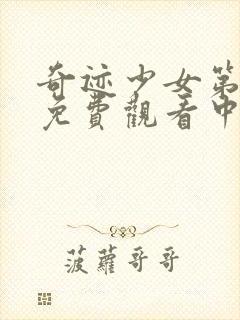 奇迹少女第
免費觀看中
菠蘿哥哥